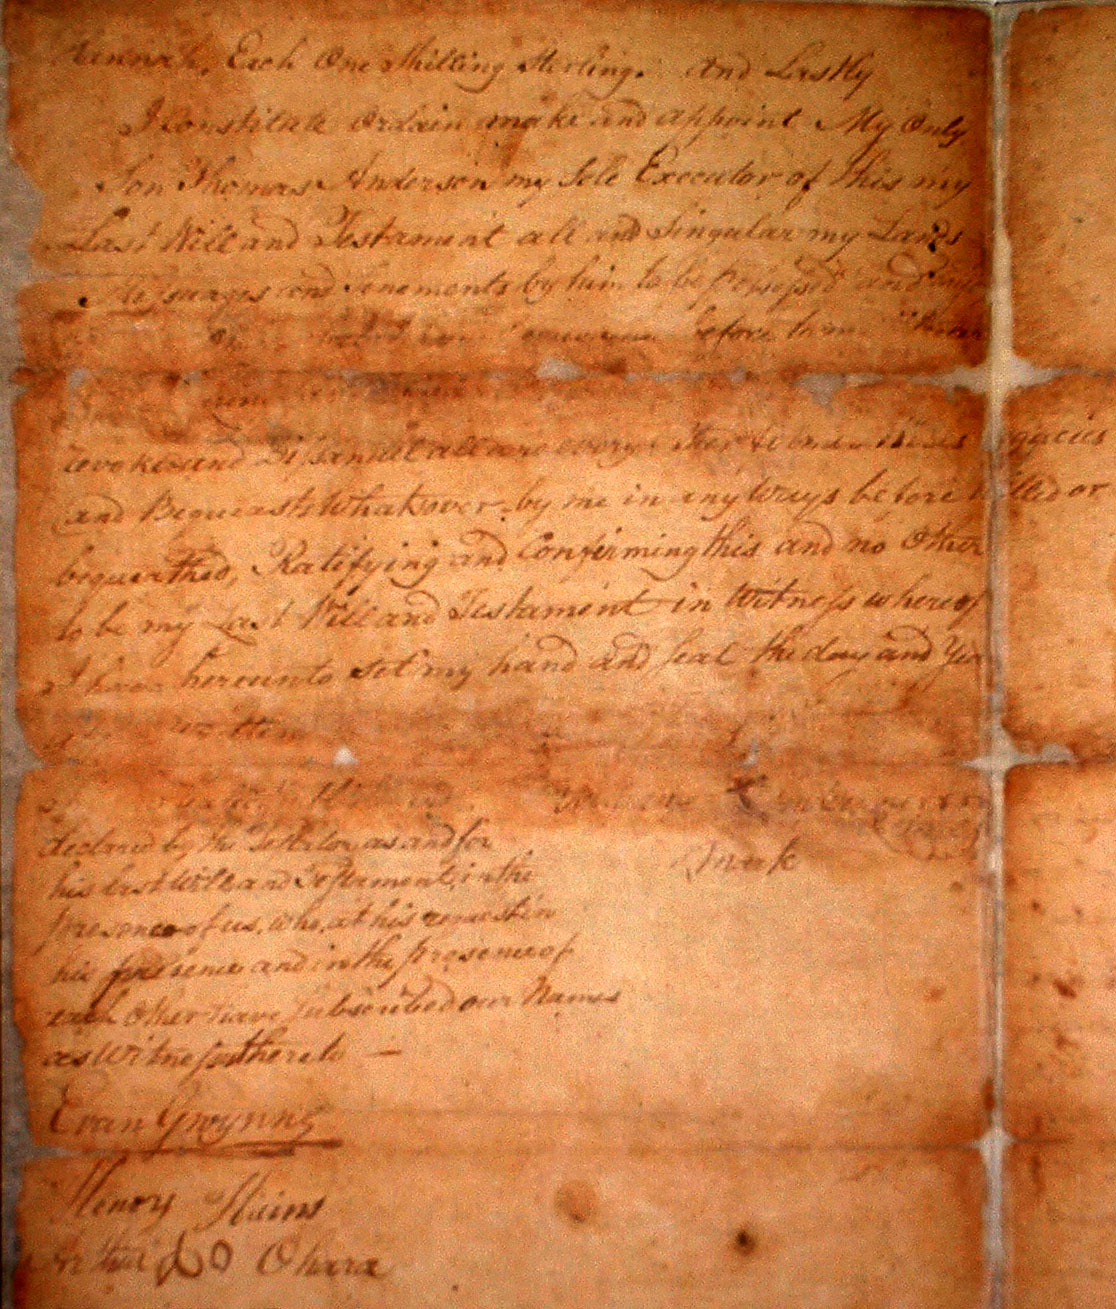 Hennah, Each One Shilling Sterling. And Lastly
I Constitute Ordain make and appoint My Only
Son Thomas Anderson my Sole Executor of this my
Last Will and Testament all and Singular my Lands
Messuages and Tenements by him to be Possessed and
before him
evoke and Disannul all and every other
and Bequeasts Whatsover by me in any Ways before Willed or
bequeathed, Ratifying and Confirming this and no Other
to be my Last Will and Testament in Witness whereof
I have hereunto Set my hand and Seal the day and Year
written
declared by the Testator as and for
his last Will and Testement, in the
presence of us, who, at his request in
his presence and in the presence of
each Other have Subscribed our Names
as Witness thereto —
mark
Evan Gwynne
Henory Stains
O Ohara